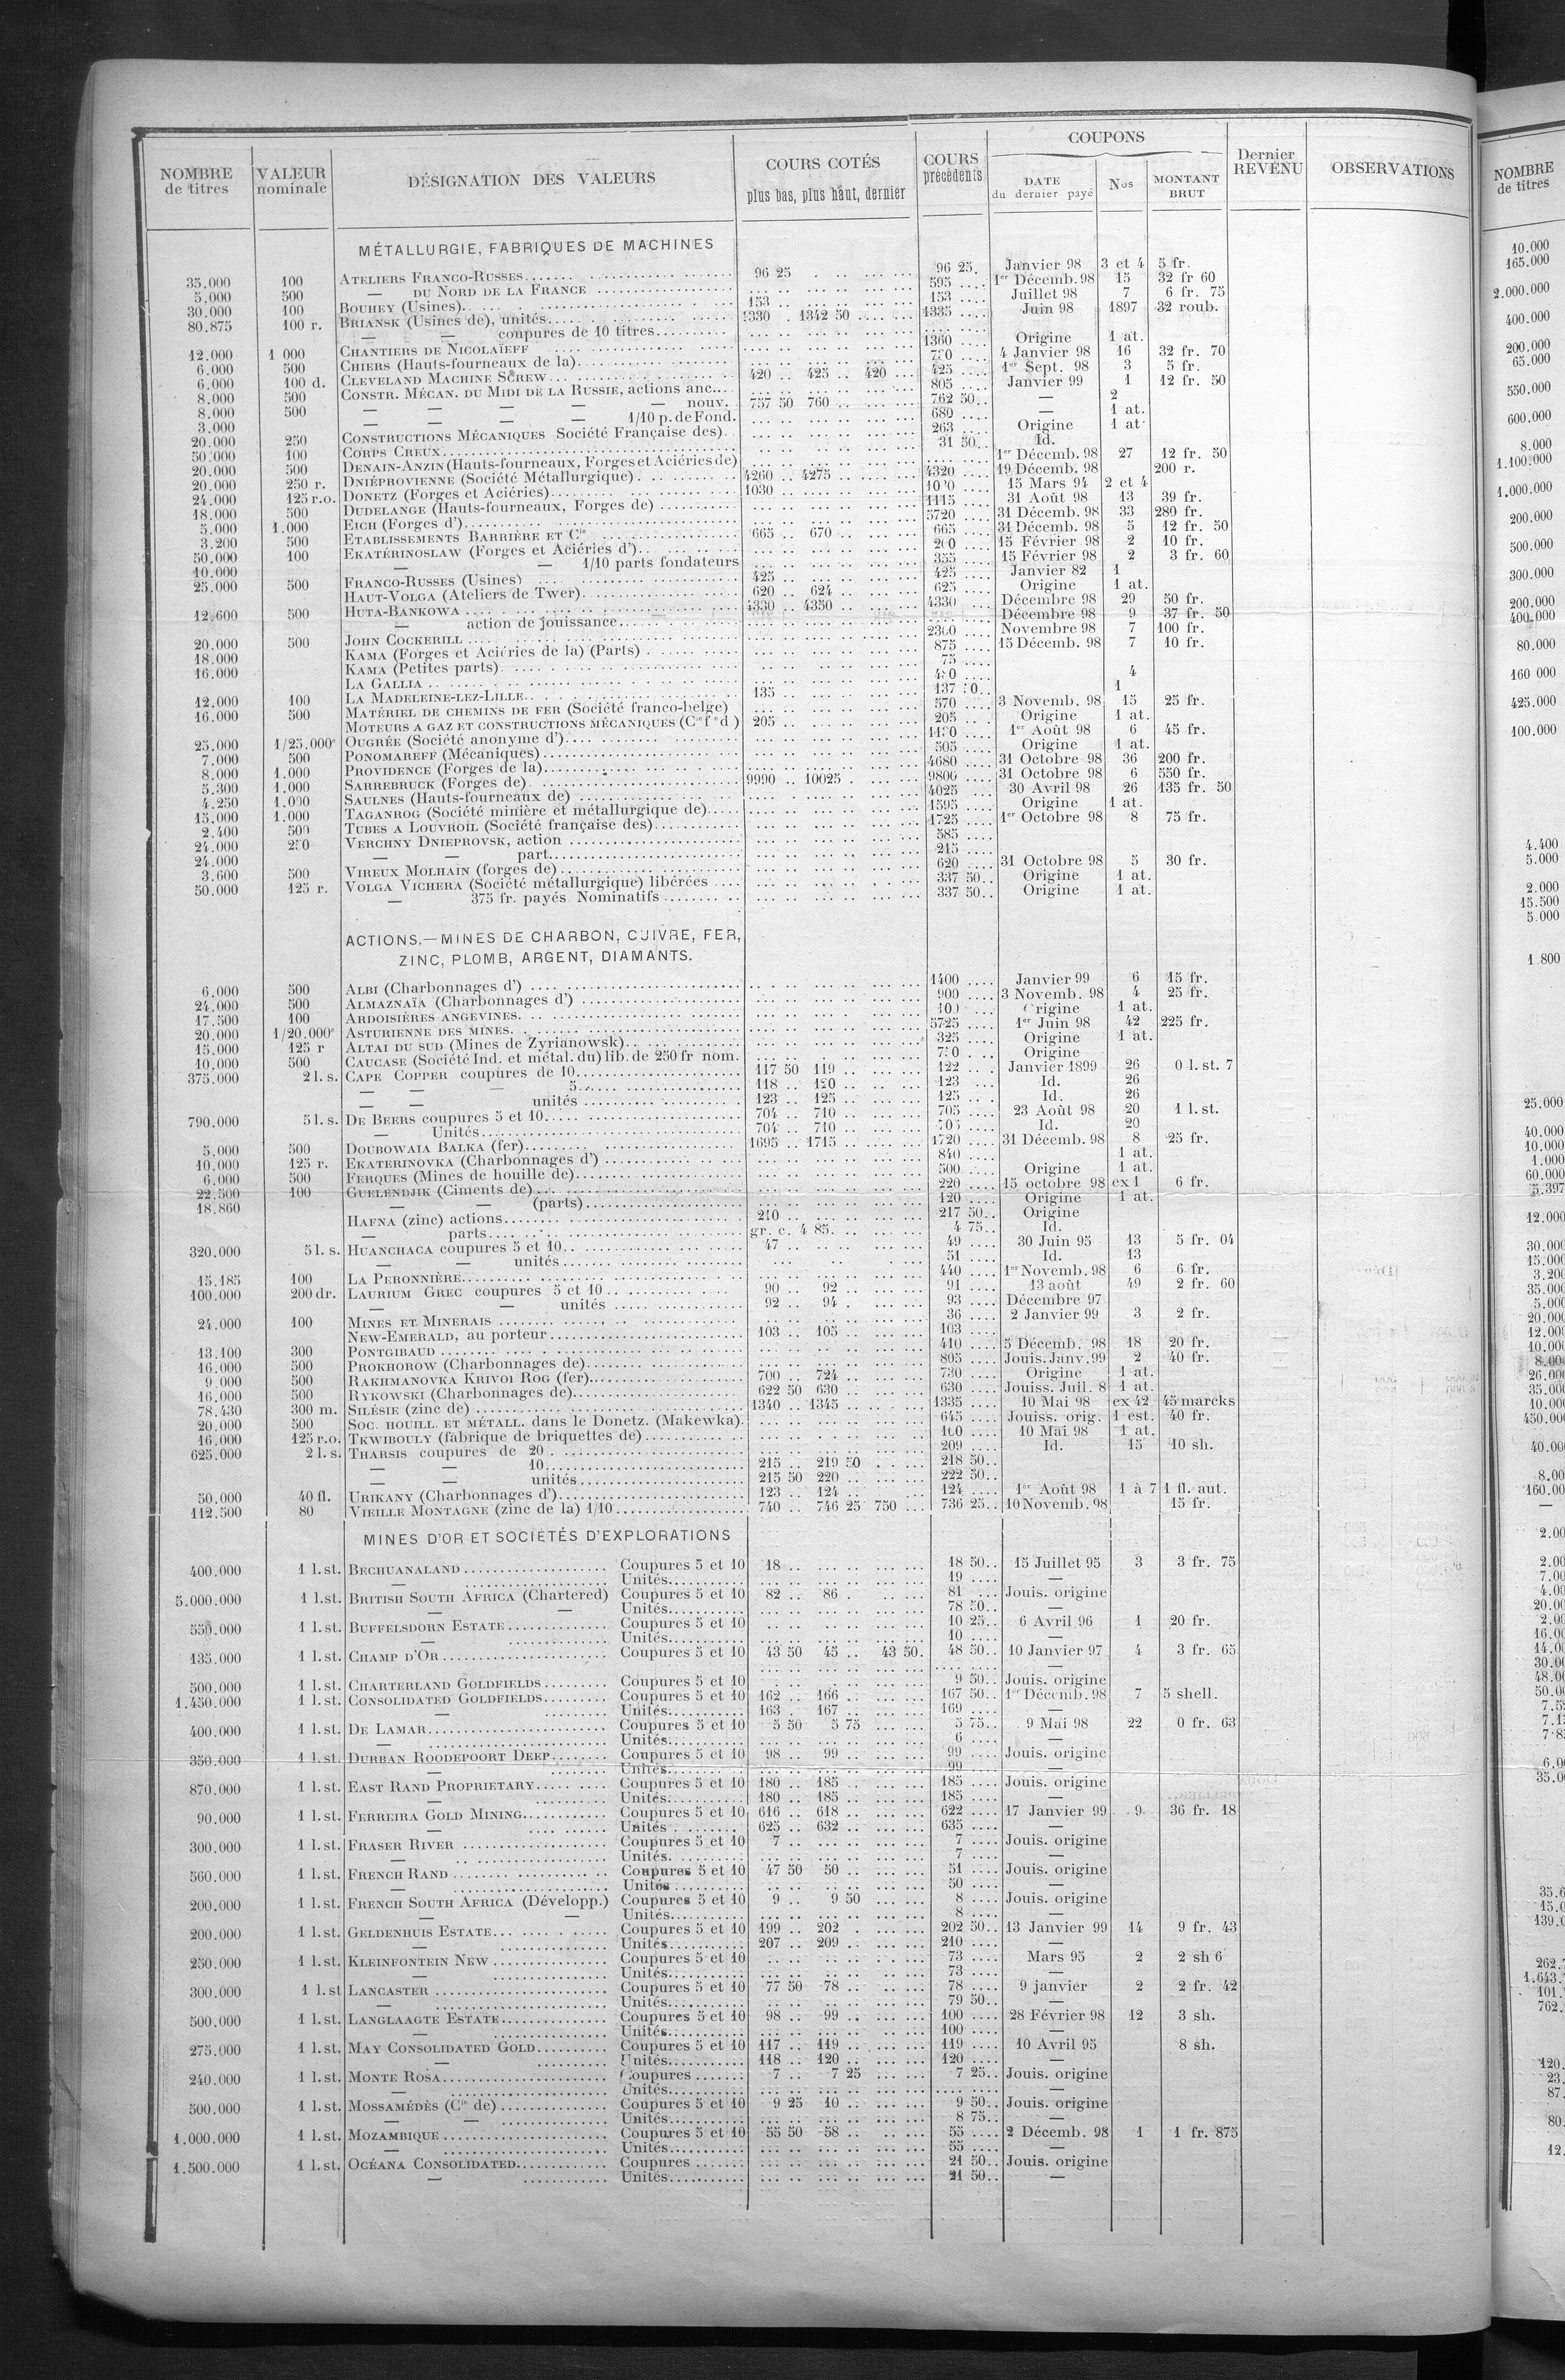 NOMBRE de titres | VALEUR nominale | DÉSIGNATION DES VALEURS | COURS COTÉS plus bas, plus haut, dernier | COURS précédents | COUPONS DATE du dernier payé | Nos | MONTANT BRUT | Dernier REVENU | OBSERVATIONS
MÉTALLURGIE, FABRIQUES DE MACHINES
35.000 100 ATELIERS FRANCO-RUSSES 96 25 96 25 Janvier 98 3 et 4 5 fr.
5.000 500 — DU NORD DE LA FRANCE 595 1er Décemb. 98 15 32 fr 60
30.000 100 BOUHEY (Usines) 153 153 Juillet 98 7 6 fr. 75
80.875 100 r. BRIANSK (Usines de), unités 1330 1342 50 1335 Juin 98 1897 32 roub.
— — coupures de 10 titres
12.000 1 000 CHANTIERS DE NICOLAÏEFF 1360 Origine 1 at.
6.000 500 CHIERS (Hauts-fourneaux de la) 4 Janvier 98 16 32 fr. 70
6.000 100 d. CLEVELAND MACHINE SCREW 420 425 420 425 1er Sept. 98 3 5 fr.
8.000 500 CONSTR. MÉCAN. DU MIDI DE LA RUSSIE, actions anc. 805 Janvier 99 1 12 fr. 50
8.000 500 — — — — — nouv. 757 50 760 762 50 — 2
3.000 — — — — 1/10 p. de Fond. 680 — 1 at.
20.000 250 CONSTRUCTIONS MÉCANIQUES Société Française des) 263 Origine 1 at.
50.000 100 CORPS CREUX 31 50 Id.
20.000 500 DENAIN-ANZIN (Hauts-fourneaux, Forges et Aciéries de) 1er Décemb. 98 27 12 fr. 50
20.000 250 r. DNIÉPROVIENNE (Société Métallurgique) 4260 4275 4320 19 Décemb. 98 200 r.
24.000 125 r.o. DONETZ (Forges et Aciéries) 1030 15 Mars 94 2 et 4
18.000 500 DUDELANGE (Hauts-fourneaux, Forges de) 1115 31 Août 98 13 39 fr.
5.000 1.000 EICH (Forges d') 5720 31 Décemb. 98 33 280 fr.
3.200 500 ETABLISSEMENTS BARRIÈRE ET Cie 665 670 665 31 Décemb. 98 5 12 fr. 50
50.000 100 EKATÉRINOSLAW (Forges et Aciéries d') 15 Février 98 2 10 fr.
10.000 — — 1/10 parts fondateurs 355 15 Février 98 2 3 fr. 60
25.000 500 FRANCO-RUSSES (Usines) 425 425 Janvier 82 1
HAUT-VOLGA (Ateliers de Twer) 620 624 625 Origine 1 at.
12.600 500 HUTA-BANKOWA 4330 4350 4330 Décembre 98 29 50 fr.
— action de jouissance Décembre 98 9 37 fr. 50
20.000 500 JOHN COCKERILL Novembre 98 7 100 fr.
18.000 KAMA (Forges et Aciéries de la) (Parts) 875 15 Décemb. 98 7 10 fr.
16.000 KAMA (Petites parts) 75
LA GALLIA 4
12.000 100 LA MADELEINE-LEZ-LILLE 135 1
16.000 500 MATÉRIEL DE CHEMINS DE FER (Société franco-belge) 570 3 Novemb. 98 15 25 fr.
MOTEURS A GAZ ET CONSTRUCTIONS MÉCANIQUES 205 205 Origine 1 at.
25.000 1/25.000e OUGRÉE (Société anonyme d') 1er Août 98 6 45 fr.
7.000 500 PONOMAREFF (Mécaniques) 505 Origine 1 at.
8.000 1.000 PROVIDENCE (Forges de la) 4680 31 Octobre 98 36 200 fr.
5.300 1.000 SARREBRUCK (Forges de) 9990 10025 9800 31 Octobre 98 6 550 fr.
4.250 1.000 SAULNES (Hauts-fourneaux de) 4025 30 Avril 98 26 135 fr. 50
15.000 1.000 TAGANROG (Société minière et métallurgique de) 1595 Origine 1 at.
2.400 500 TUBES A LOUVROIL (Société française des) 1725 1er Octobre 98 8 75 fr.
24.000 250 VERCHNY DNIEPROVSK, action 585
24.000 — — part 215
3.600 500 VIREUX MOLHAIN (forges de) 620 31 Octobre 98 5 30 fr.
50.000 125 r. VOLGA VICHERA (Société métallurgique) libérées 337 50 Origine 1 at.
— 375 fr. payés Nominatifs 337 50 Origine 1 at.
ACTIONS.—MINES DE CHARBON, CUIVRE, FER,
ZINC, PLOMB, ARGENT, DIAMANTS.
6.000 500 ALBI (Charbonnages d') 1400 Janvier 99 6 15 fr.
24.000 500 ALMAZNAÏA (Charbonnages d') 900 3 Novemb. 98 4 25 fr.
17.500 100 ARDOISIÈRES ANGEVINES Origine 1 at.
20.000 1/20.000e ASTURIENNE DES MINES 5725 1er Juin 98 42 225 fr.
15.000 125 r ALTAI DU SUD (Mines de Zyrianowsk) 325 Origine 1 at.
10.000 500 CAUCASE (Société Ind. et métal. du) lib. de 250 fr nom. Origine
375.000 2 l. s. CAPE COPPER coupures de 10 117 50 119 122 Janvier 1899 26 0 l. st. 7
— — — 5 118 120 123 Id. 26
— — unités 123 125 125 Id. 26
790.000 5 l. s. DE BEERS coupures 5 et 10 704 710 705 23 Août 98 20 1 l. st.
— Unités 704 710 Id. 20
5.000 500 DOUBOWAIA BALKA (fer) 1695 1715 1720 31 Décemb. 98 8 25 fr.
10.000 125 r. EKATERINOVKA (Charbonnages d') 840 1 at.
6.000 500 FERQUES (Mines de houille de) 500 Origine 1 at.
22.500 100 GUELENDJIK (Ciments de) 220 15 octobre 98 ex 1 6 fr.
18.860 — (parts) 120 Origine 1 at.
HAFNA (zinc) actions 210 217 50 Origine
— parts gr. c. 4 85 4 75 Id.
320.000 5 l. s. HUANCHACA coupures 5 et 10 47 49 30 Juin 95 13 5 fr. 04
— — unités 51 Id. 13
15.185 100 LA PERONNIÈRE 440 1er Novemb. 98 6 6 fr.
100.000 200 dr. LAURIUM GREC coupures 5 et 10 90 92 91 13 août 49 2 fr. 60
— — unités 92 94 93 Décembre 97
24.000 100 MINES ET MINERAIS 36 2 Janvier 99 3 2 fr.
NEW-EMERALD, au porteur 103 105 103
13.100 300 PONTGIBAUD 410 5 Décemb. 98 18 20 fr.
16.000 500 PROKHOROW (Charbonnages de) 805 Jouis. Janv. 99 2 40 fr.
9.000 500 RAKHMANOVKA KRIVOI ROG (fer) 700 724 730 Origine 1 at.
16.000 500 RYKOWSKI (Charbonnages de) 622 50 630 630 Jouiss. Juil. 8 1 at.
78.430 300 m. SILÉSIE (zinc de) 1340 1345 1335 10 Mai 98 ex 42 45 marcks
20.000 500 SOC. HOUILL. ET MÉTALL. dans le Donetz. (Makewka) 645 Jouiss. orig. 1 est. 40 fr.
16.000 125 r.o. TKWIBOULY (fabrique de briquettes de) 10 Mai 98 1 at.
625.000 2 l. s. THARSIS coupures de 20 209 Id. 15 10 sh.
— — 10 215 219 50 218 50
— — unités 215 50 220 222 50
50.000 40 fl. URIKANY (Charbonnages d') 123 124 124 1er Août 98 1 à 7 1 fl. aut.
112.500 80 VIEILLE MONTAGNE (zinc de la) 1/10 740 746 25 750 736 25 10 Novemb. 98 15 fr.
MINES D'OR ET SOCIÉTÉS D'EXPLORATIONS
400.000 1 l. st. BECHUANALAND Coupures 5 et 10 18 18 50 15 Juillet 95 3 3 fr. 75
— Unités 19 —
5.000.000 1 l. st. BRITISH SOUTH AFRICA (Chartered) Coupures 5 et 10 82 86 81 Jouis. origine
— — Unités 78 50 —
550.000 1 l. st. BUFFELSDORN ESTATE Coupures 5 et 10 10 25 6 Avril 96 1 20 fr.
— Unités 10 —
135.000 1 l. st. CHAMP D'OR Coupures 5 et 10 43 50 45 43 50 48 50 10 Janvier 97 4 3 fr. 65
—
500.000 1 l. st. CHARTERLAND GOLDFIELDS Coupures 5 et 10 9 50 Jouis. origine
1.450.000 1 l. st. CONSOLIDATED GOLDFIELDS Coupures 5 et 10 162 166 167 50 1er Décemb. 98 7 5 shell.
— Unités 163 167 169 —
400.000 1 l. st. DE LAMAR Coupures 5 et 10 5 50 5 75 5 75 9 Mai 98 22 0 fr. 63
— Unités 6 —
350.000 1 l. st. DURBAN ROODEPOORT DEEP Coupures 5 et 10 98 99 99 Jouis. origine
— Unités 99 —
870.000 1 l. st. EAST RAND PROPRIETARY Coupures 5 et 10 180 185 185 Jouis. origine
— Unités 180 185 185 —
90.000 1 l. st. FERREIRA GOLD MINING Coupures 5 et 10 616 618 622 17 Janvier 99 9 36 fr. 18
— Unités 625 632 635 —
300.000 1 l. st. FRASER RIVER Coupures 5 et 10 7 7 Jouis. origine
— Unités 7 —
560.000 1 l. st. FRENCH RAND Coupures 5 et 10 47 50 50 51 Jouis. origine
— Unités 50 —
200.000 1 l. st. FRENCH SOUTH AFRICA (Développ.) Coupures 5 et 10 9 9 50 8 Jouis. origine
— — Unités 8 —
200.000 1 l. st. GELDENHUIS ESTATE Coupures 5 et 10 199 202 202 50 13 Janvier 99 14 9 fr. 43
— Unités 207 209 210 —
250.000 1 l. st. KLEINFONTEIN NEW Coupures 5 et 10 73 Mars 95 2 2 sh 6
— Unités 73 —
300.000 1 l. st LANCASTER Coupures 5 et 10 77 50 78 78 9 janvier 2 2 fr. 42
— Unités 79 50 —
500.000 1 l. st. LANGLAAGTE ESTATE Coupures 5 et 10 98 99 100 28 Février 98 12 3 sh.
— Unités 100 —
275.000 1 l. st. MAY CONSOLIDATED GOLD Coupures 5 et 10 117 119 119 10 Avril 95 8 sh.
— Unités 118 120 120 —
240.000 1 l. st. MONTE ROSA Coupures 7 7 25 7 25 Jouis. origine
— Unités —
500.000 1 l. st. MOSSAMÉDÈS (Cie de) Coupures 5 et 10 9 25 10 9 50 Jouis. origine
— — Unités 8 75 —
1.000.000 1 l. st. MOZAMBIQUE Coupures 5 et 10 55 50 58 55 2 Décemb. 98 1 1 fr. 875
— Unités 55 —
1.500.000 1 l. st. OCÉANA CONSOLIDATED Coupures 21 50 Jouis. origine
— Unités 21 50 —
NOMBRE de titres
10.000
165.000
2.000.000
400.000
200.000
65.000
550.000
600.000
8.000
1.100.000
1.000.000
200.000
500.000
300.000
200.000
400.000
80.000
160 000
425.000
100.000
4.400
5.000
2.000
15.500
5.000
1 800
25.000
40.000
10.000
1.000
60.000
5.397
12.000
30.000
15.000